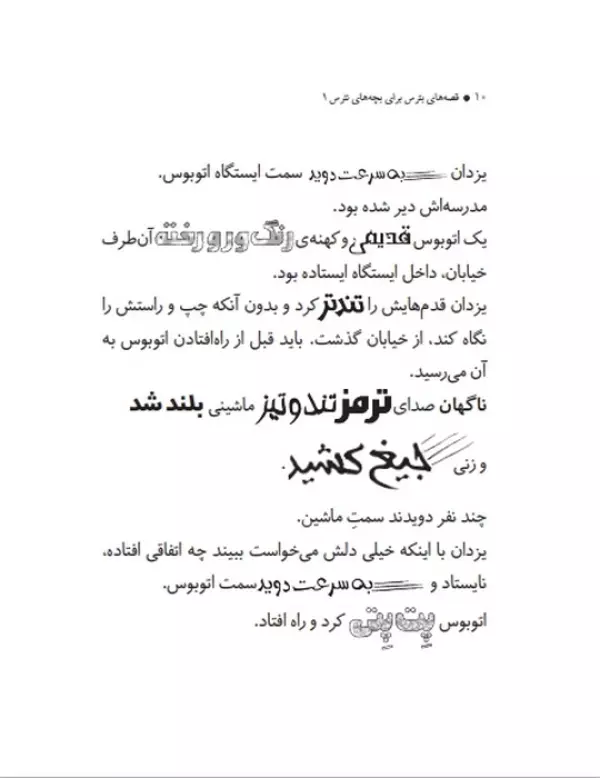 ۱۰ ● قصه‌های بترس برای بچه‌های نترس ۹
یزدان به سرعت دوید سمت ایستگاه اتوبوس.
مدرسه‌اش دیر شده بود.
یک اتوبوس قدیمی و کهنه‌ی رنگ و رو رفته آن‌طرف
خیابان، داخل ایستگاه ایستاده بود.
یزدان قدم‌هایش را تندتر کرد و بدون آنکه چپ و راستش را
نگاه کند، از خیابان گذشت. باید قبل از راه‌افتادن اتوبوس به
آن می‌رسید.
ناگهان صدای ترمز تند و تیز ماشینی بلند شد
و زنی جیغ کشید.
چند نفر دویدند سمتِ ماشین.
یزدان با اینکه خیلی دلش می‌خواست ببیند چه اتفاقی افتاده،
نایستاد و به سرعت دوید سمت اتوبوس.
اتوبوس پِت پِتی کرد و راه افتاد.